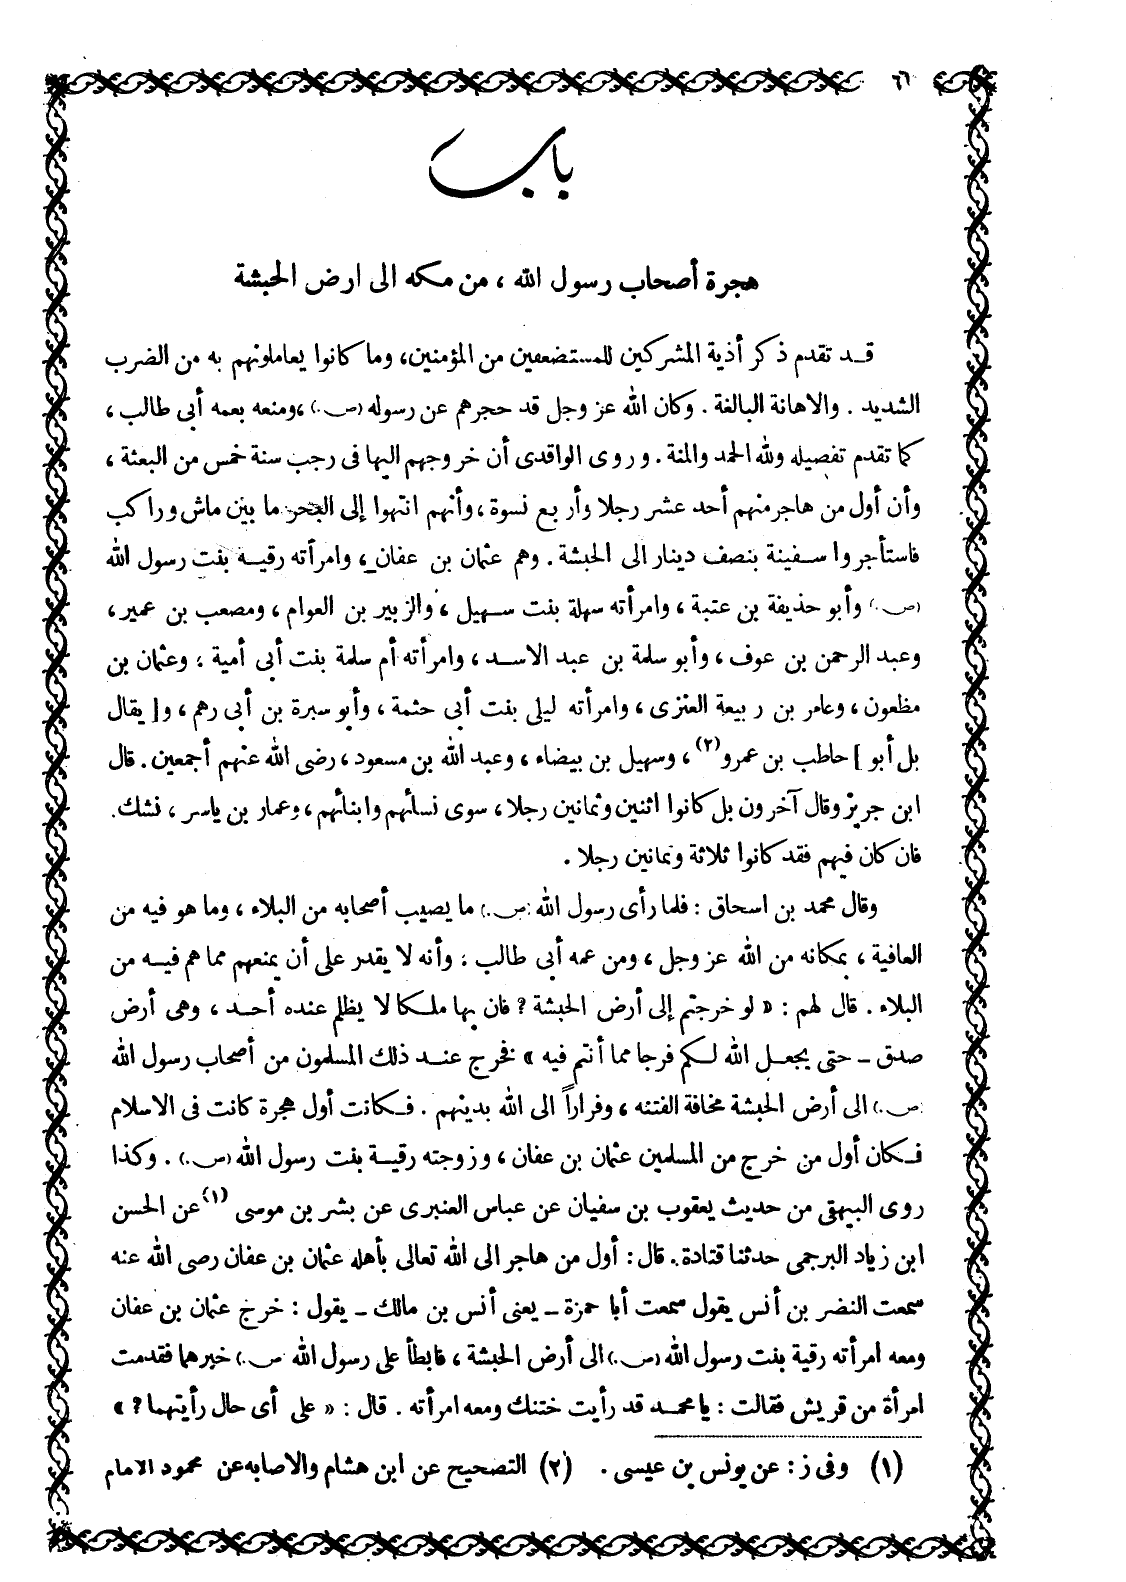 ٦٦
باب
هجرة أصحاب رسول الله ، من مكه الى ارض الحبشة
قد تقدم ذكر أذية المشركين للمستضعفين من المؤمنين، وما كانوا يعاملونهم به من الضرب
الشديد . والاهانة البالغة . وكان الله عز وجل قد حجرهم عن رسوله (ص.) ،ومنعه بعمه أبى طالب ،
كما تقدم تفصيله ولله الحمد والمنة . وروى الواقدى أن خروجهم اليها فى رجب سنة خمس من البعثة ،
وأن أول من هاجر منهم أحد عشر رجلا وأربع نسوة ، وأنهم انتهوا إلى البحر ما بين ماش وراكب
فاستأجروا سفينة بنصف دينار الى الحبشة . وهم عثمان بن عفان ، وامرأته رقية بنت رسول الله
(ص.) وأبو حذيفة بن عتبة ، وامرأته سهلة بنت سهيل ، والزبير بن العوام ، ومصعب بن عمير،
وعبد الرحمن بن عوف ، وأبو سلمة بن عبد الاسد ، وامرأته أم سلمة بنت أبى أمية ، وعثمان بن
مظعون ، وعامر بن ربيعة العنزى ، وامرأته ليلى بنت أبى حثمة ، وأبو سبرة بن أبى رهم ، و[ يقال
بل أبو ] حاطب بن عمرو(٢) ، وسهيل بن بيضاء ، وعبد الله بن مسعود ، رضى الله عنهم أجمعين . قال
ابن جرير وقال آخرون بل كانوا اثنين وثمانين رجلا ، سوى نسائهم وابنائهم ، وعمار بن ياسر ، نشك.
فان كان فيهم فقد كانوا ثلاثة وثمانين رجلا .
وقال محمد بن اسحاق : فلما رأى رسول الله (ص.) ما يصيب أصحابه من البلاء ، وما هو فيه من
العافية ، بمكانه من الله عز وجل ، ومن عمه أبى طالب ، وأنه لا يقدر على أن يمنعهم مما هم فيه من
البلاء . قال لهم : « لو خرجتم إلى أرض الحبشة ؟ فان بها ملكا لا يظلم عنده أحد ، وهى أرض
صدق ــ حتى يجعل الله لكم فرجا مما أنتم فيه » فخرج عند ذلك المسلمون من أصحاب رسول الله
(ص.) الى أرض الحبشة مخافة الفتنه ، وفراراً الى الله بدينهم . فكانت أول هجرة كانت فى الاسلام
فكان أول من خرج من المسلمين عثمان بن عفان ، وزوجته رقية بنت رسول الله (ص.) . وكذا
روى البيهقى من حديث يعقوب بن سفيان عن عباس العنبرى عن بشر بن موسى (١) عن الحسن
ابن زياد البرجمى حدثنا قتادة. قال : أول من هاجر الى الله تعالى بأهله عثمان بن عفان رضى الله عنه
سمعت النضر بن أنس يقول سمعت أبا حمزة ــ يعنى أنس بن مالك ــ يقول : خرج عثمان بن عفان
ومعه امرأته رقية بنت رسول الله (ص.) الى أرض الحبشة ، فابطأ على رسول الله (ص.) خبرهما فقدمت
امرأة من قريش فقالت : يا محمد قد رأيت ختنك ومعه امرأته . قال : « على أى حال رأيتهما ؟ »
(١) وفى ز : عن يونس بن عيسى . (٢) التصحيح عن ابن هشام والاصابه عن محمود الامام